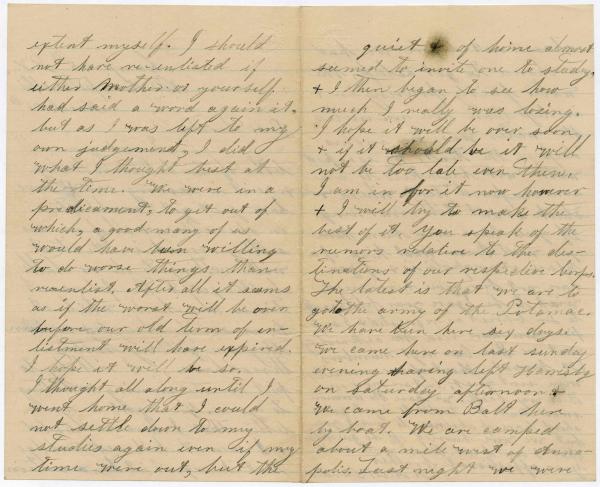 extent myself. I should
not have re-enlisted if
either Mother or yourself
had said a word again it.
but as I was left to my
own judgement, I did
what I thought best at
the time. We were in a
predicament, to get out of
which, a good many of us
would have been willing
to do worse things than
reenlist. After all it seems
as if the worst will be over
before our old term of en-
listment will have expired.
I hope it will be so.
I thought all along until I
went home that I could
not settle down to my
studies again even if my
time were out, but the
quiet + of home almost
seemed to invite one to study,
+ I then began to see how
much I really was losing.
I hope it will be over soon
+ if it should be it will
not be too late even then.
I am in for it now however
+ I will try to make the
best of it. You speak of the
rumors relative to the des-
tinations of our respective corps.
The latest is that we are to
go to the army of the Potomac.
We have been here six days.
We came here on last sunday
evening having left Harrisbg
on saturday afternoon +
We came from Balt here
by boat. We are camped
about a mile west of Anna-
polis. Last night we were